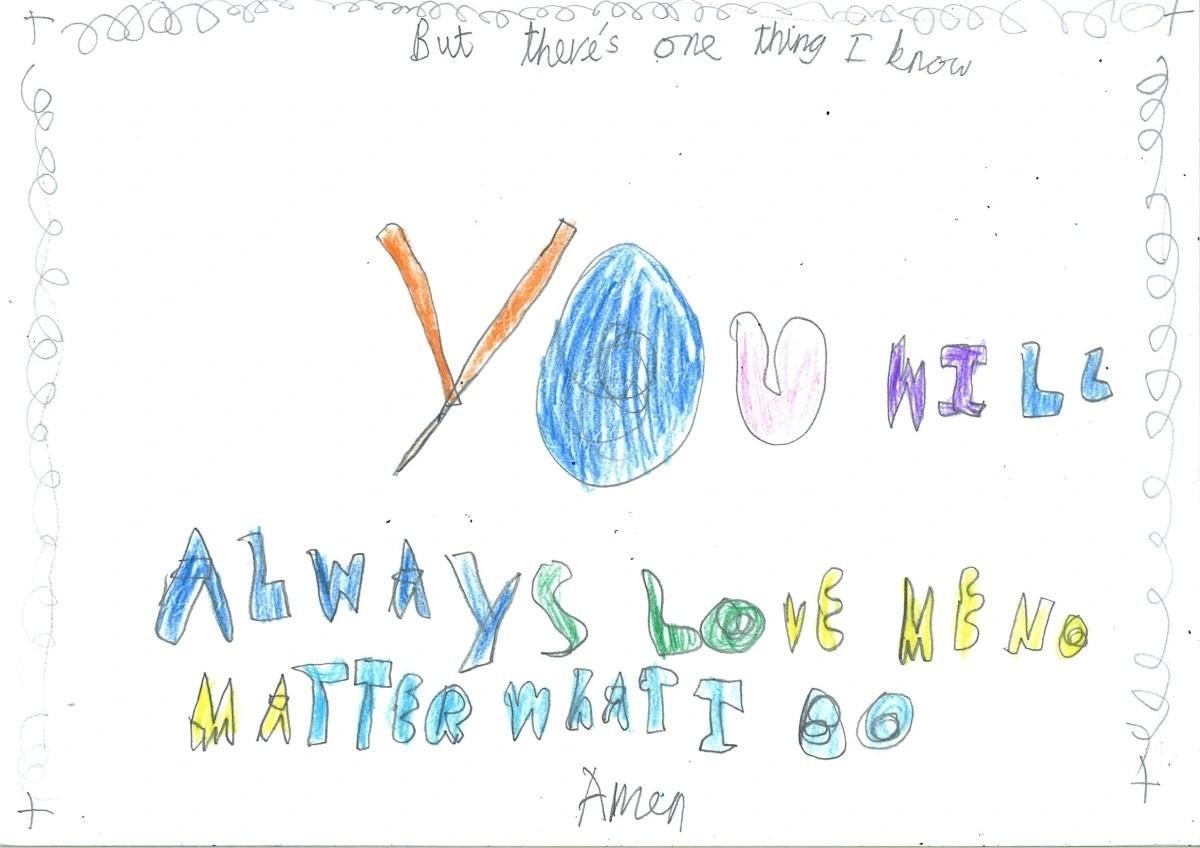 But there's one thing I know
YOU WILL
ALWAYS LOVE ME NO
MATTER WHAT I DO
Amen